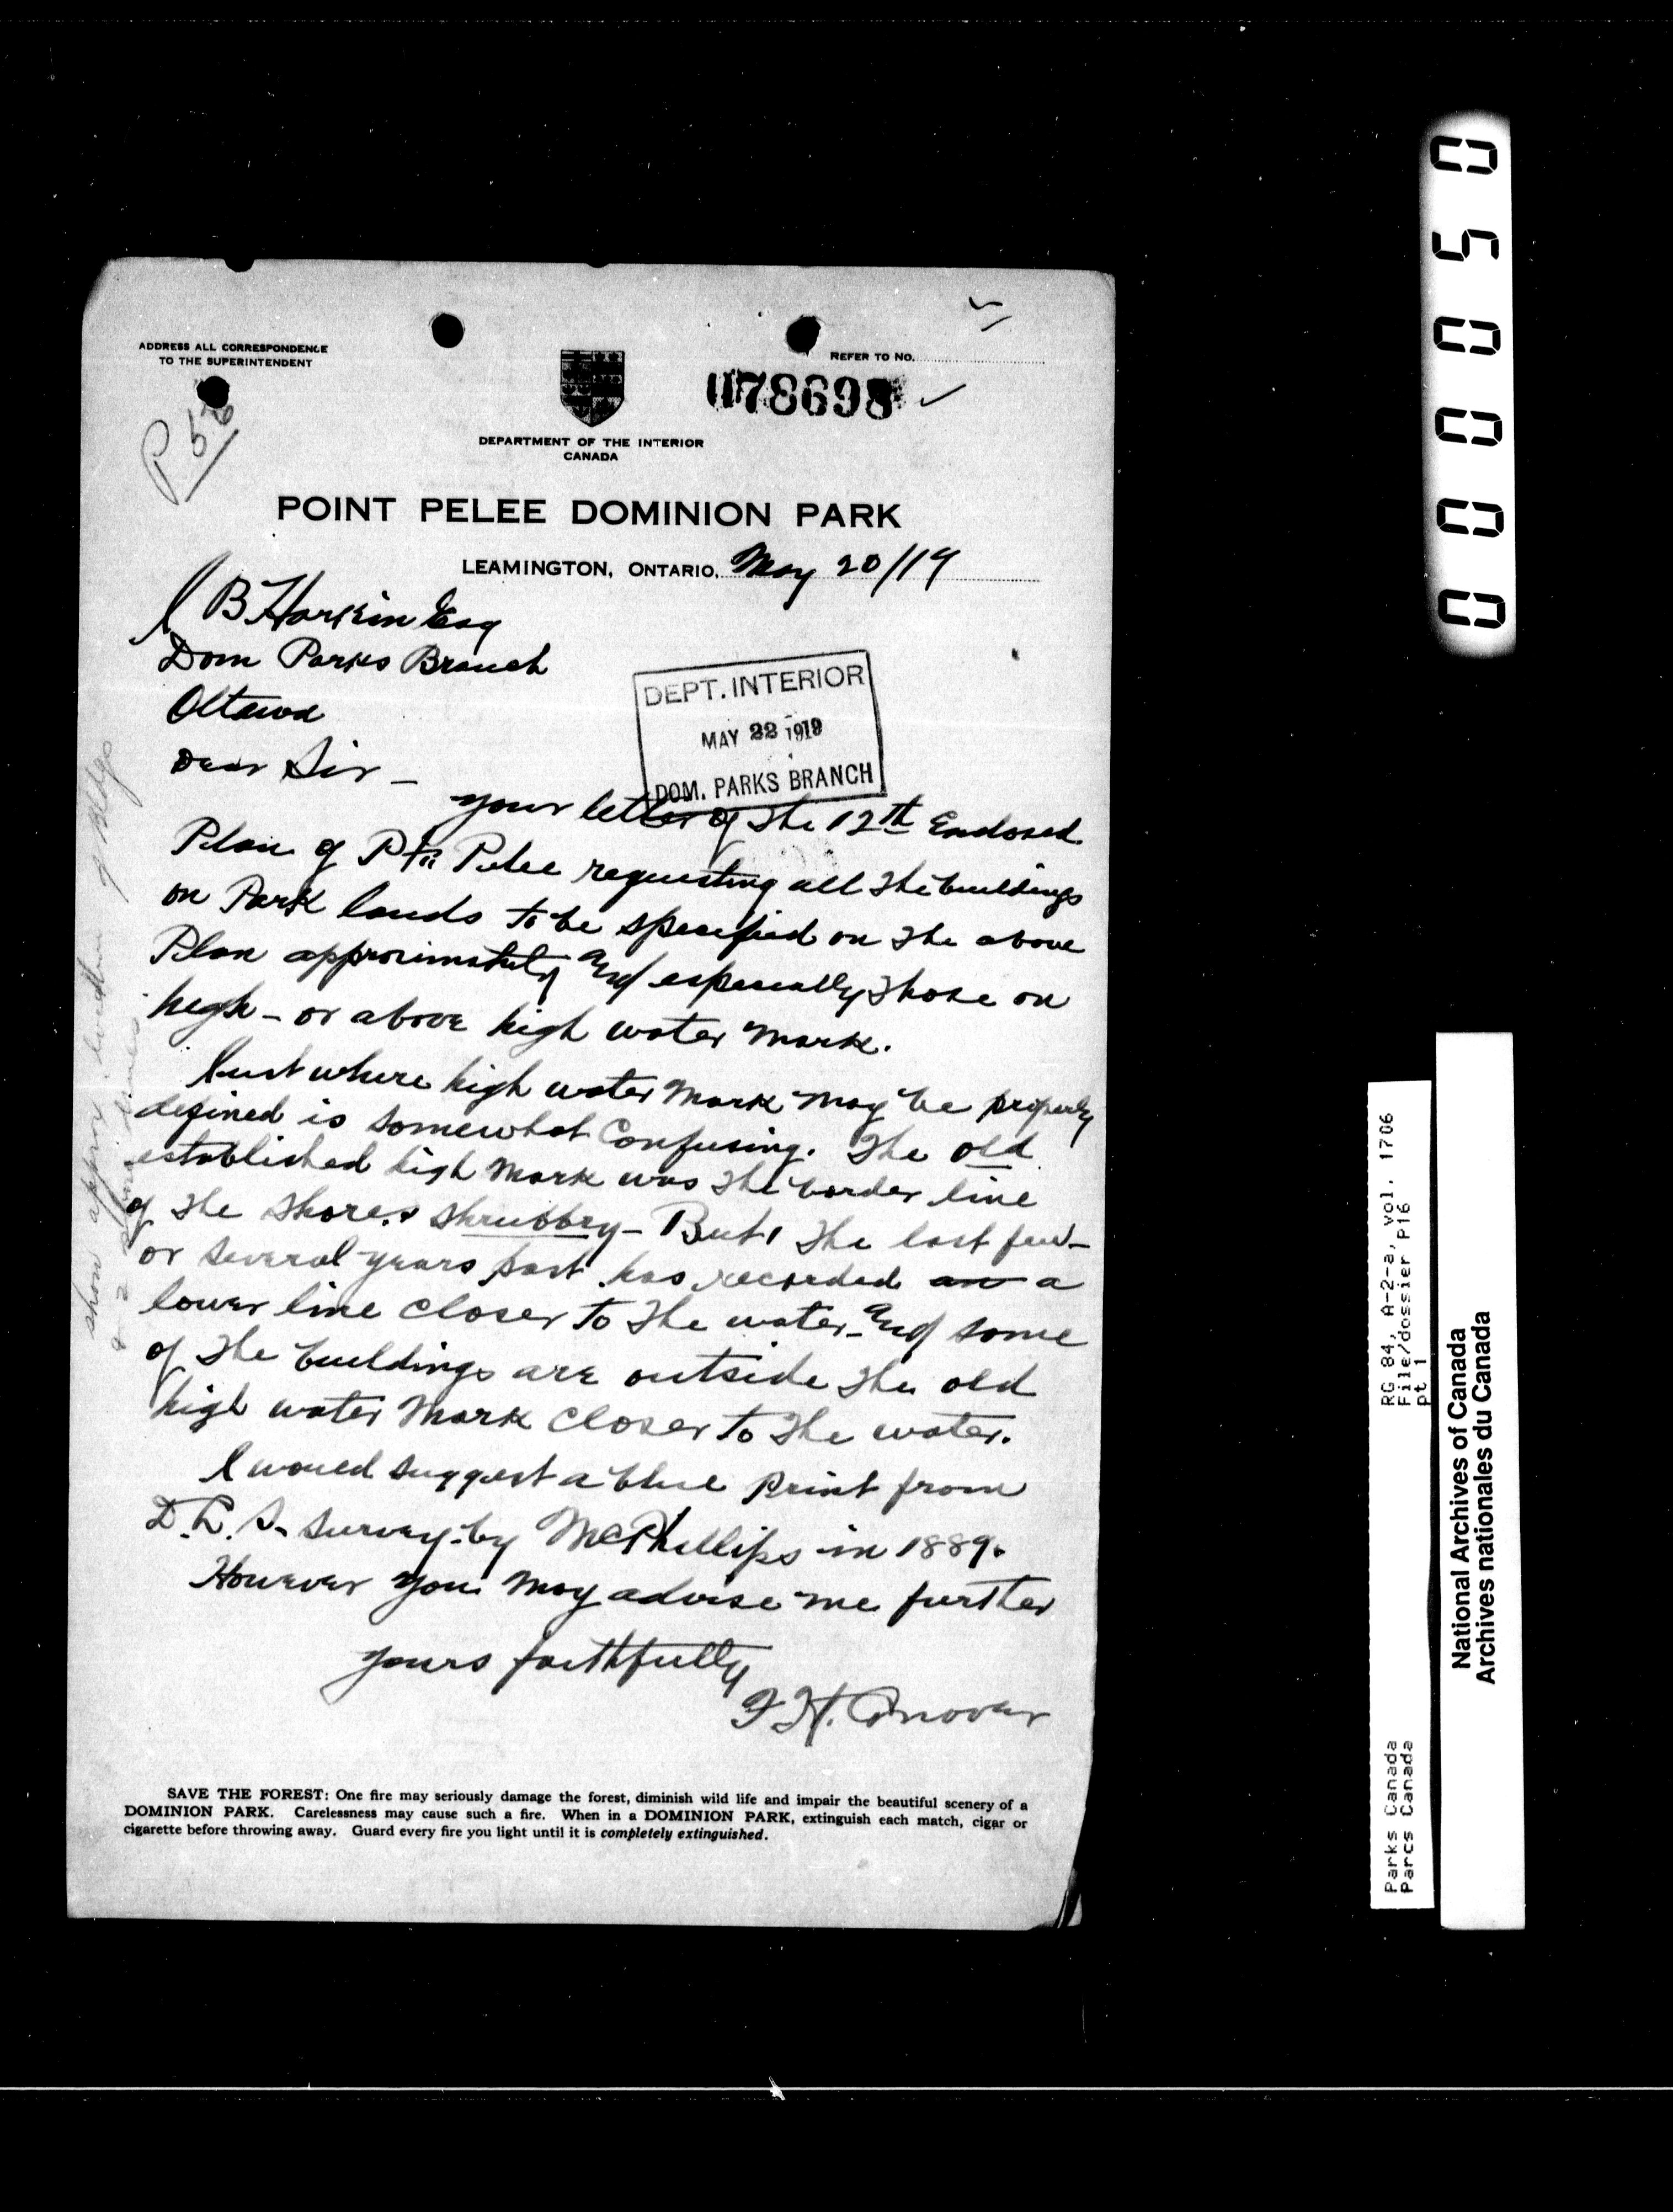 ADDRESS ALL CORRESPONDENCE
TO THE SUPERINTENDENT
REFER TO NO.
078698
P 56
DEPARTMENT OF THE INTERIOR
CANADA
POINT PELEE DOMINION PARK
LEAMINGTON, ONTARIO, May 20/19
J B Harkin Esq
Dom Parks Branch
Ottawa
Dear Sir -
DEPT. INTERIOR
MAY 22 1919
DOM. PARKS BRANCH
Your letter of the 12th Enclosed
Plan of Pte Pelee requesting all the buildings
on Park lands to be specified on the above
Plan approximately and especially those on
high - or above high water mark.
Just where high water mark may be properly
defined is somewhat Confusing. The old
established high mark was the border line
of the shore. shrubbry - But, the last few -
or several years past has recorded an a
lower line closer to the water - and some
of the buildings are outside the old
high water mark closer to the water.
I would suggest a blue print from
D.L.S. survey - by McPhillips in 1889.
However you may advise me further
Yours faithfully
F H. Conover
show approx location of bldgs
SAVE THE FOREST: One fire may seriously damage the forest, diminish wild life and impair the beautiful scenery of a
DOMINION PARK. Carelessness may cause such a fire. When in a DOMINION PARK, extinguish each match, cigar or
cigarette before throwing away. Guard every fire you light until it is completely extinguished.
000050
RG 84, A-2-a, vol. 1706
File/dossier P16
pt 1
Parks Canada
Parcs Canada
National Archives of Canada
Archives nationales du Canada